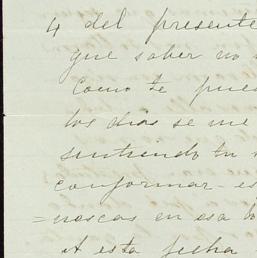 4 del presente
que saber no
como te pue
los dias se me
sintiendo tu
conformar - es
= noscas en esa
A esta fecha